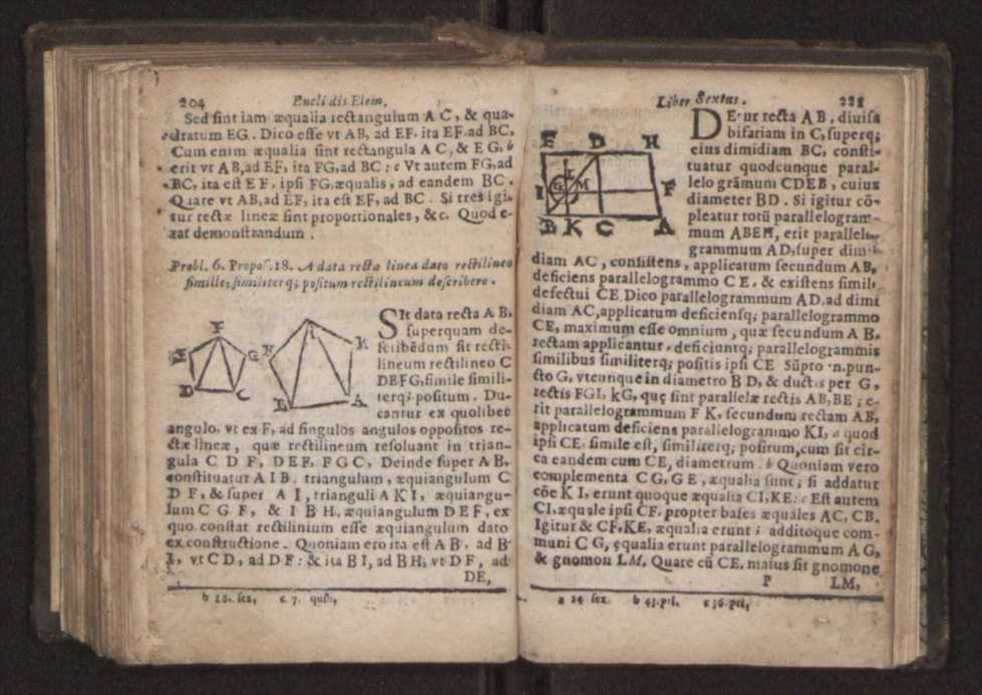 204 Euclidis Elem.
Sed sint iam æqualia rectangulum A C, & qua-
dratum EG. Dico esse vt AB, ad EF, ita EF ad BC.
Cum enim æqualia sint rectangula A C, & E G, b
erit vt AB, ad EF, ita FG, ad BC : c Vt autem FG, ad
BC, ita est E F, ipsi FG, æqualis, ad eandem BC.
Quare vt AB, ad EF, ita est EF, ad BC. Si tres igi-
tur rectæ lineæ sint proportionales, &c. Quod e-
rat demonstrandum.
Probl. 6. Propos. 18. A data recta linea dato rectilineo
simile, similiter q; positum rectilineum describere.
F
E G
D C
H K
I
B A
SIt data recta A B,
superquam de-
scribēdum sit recti-
lineum rectilineo C
DEFG, simile simili-
terq; positum. Du-
cantur ex quolibet
angulo, vt ex F, ad singulos angulos oppositos re-
ctæ lineæ, quæ rectilineum resoluant in trian-
gula C D F, DEF, FGC, Deinde super A B,
constituatur A I B, triangulum, æquiangulum C
D F, & super A I, trianguli A K I, æquiangu-
lum C G F, & I B H, æquiangulum D E F, ex
quo constat rectilinium esse æquiangulum dato
ex constructione. Quoniam ero ita est A B, ad B
I, vt C D, ad D F: & ita B I, ad B H, vt D F, ad
DE,
b 16. sex, c 7. quin,
Liber Sextus. 221
E D H
I G L M F
B K C A
DEtur recta A B, diuisa
bifariam in C, superq;
eius dimidiam BC, consti-
tuatur quodcunque paral-
lelo grāmum CDEB, cuius
diameter BD. Si igitur cō-
pleatur totū parallelogram-
mum ABEH, erit parallelo-
grammum AD, super dimi-
diam AC, consistens, applicatum secundum AB,
deficiens parallelogrammo C E, & existens simile
defectui CE. Dico parallelogrammum AD, ad dimi
diam AC, applicatum deficiensq; parallelogrammo
CE, maximum esse omnium, quæ secundum A B,
rectam applicantur, deficiuntq; parallelogrammis
similibus similiterq; positis ipsi CE Sūpto n. pun-
cto G, vtcunque in diametro B D, & ductis per G,
rectis FGI, kG, quę sint parallelæ rectis AB, BE ; e-
rit parallelogrammum F K, secundum rectam AB,
applicatum deficiens parallelogrammo KI, a quod
ipsi CE, simile est, similiterq; positum, cum sit cir-
ca eandem cum CE, diametrum. b Quoniam vero
complementa C G, G E, æqualia sunt ; si addatur
cōe K I, erunt quoque æqualia CI, KE: c Est autem
CI, æquale ipsi CF, propter bases æquales AC, CB.
Igitur & CF, KE, æqualia erunt ; additoque com-
muni C G, ęqualia erunt parallelogrammum A G,
& gnomon LM, Quare cū CE, maius sit gnomone
P LM,
a 24 sex. b 43. pri. c 36. pri,